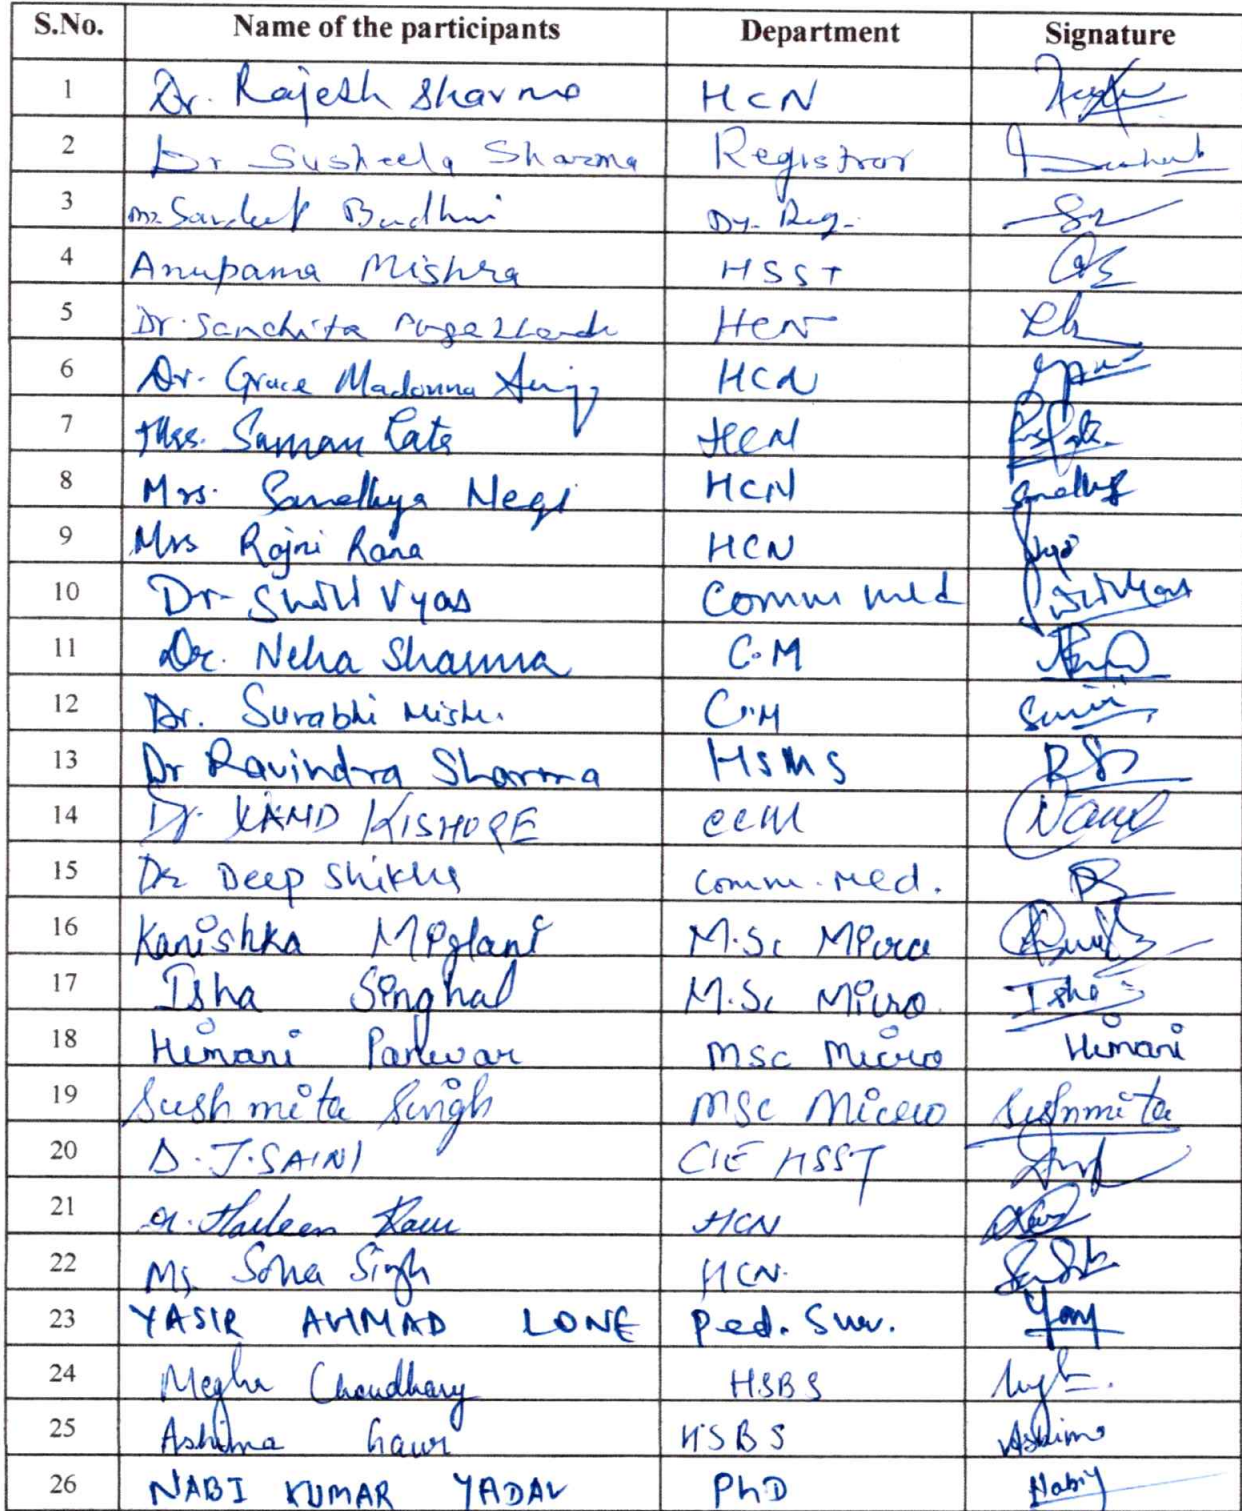 S.No. Name of the participants Department Signature
1 Dr. Rajesh Sharma HCN
2 Dr Susheela Sharma Registrar
3 Budhni Dy. Reg.
4 Anupama Mishra HSST
5 Dr. Sanchita HCN
6 Dr. Grace Madonna HCN
7 Mrs. Suman Lata HCN
8 Mrs. Sandhya Negi HCN Sandhya
9 Mrs Rajni Rana HCN
10 Dr- Vyas Comm med
11 Dr. Neha Sharma C.M
12 Dr. Surabhi Mish. C.M
13 Dr Ravindra Sharma HSMS
14 Dr. NAND KISHORE CCM Nand
15 Dr Deep Shikha Comm. Med.
16 Kanishka Miglani M.Sc Micro
17 Isha Singhal M.Sc Micro. Isha
18 Himani Panwar MSc Micro Himani
19 Sushmita Singh MSc Micro Sushmita
20 D. J. SAINI CIE HSST
21 Dr. Harleen Kaur HCN
22 Ms. Sona Singh HCN.
23 YASIR AHMAD LONE Ped. Sur.
24 Megha Choudhary HSBS
25 Ashima Gauri HSBS Ashima
26 NABI KUMAR YADAV PhD Nabiy